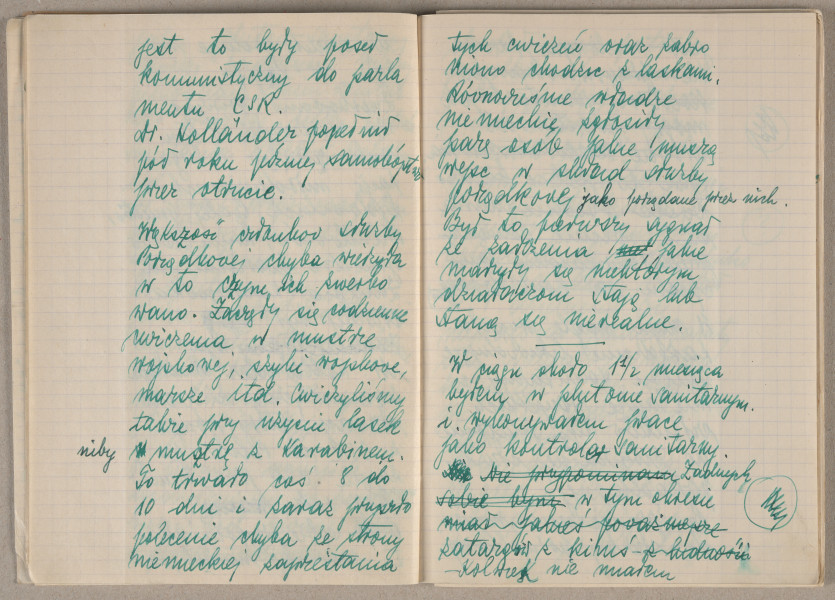 jest to były poseł
komunistyczny do parla
mentu ČSR.
dr. Holländer popełnił
pół roku później samobójst
przez otrucie.
Większość członków służby
Porządkowej chyba wierzyła
w to czym ich zwerbo
wano. Zaczęły się codzienne
ćwiczenia w musztrze
wojskowej, szyki wojskowe,
marsze itd. ćwiczyliśmy
także przy użyciu lasek
niby musztrę z karabinem.
To trwało coś 8 do
10 dni i zaraz przyszło
polecenie chyba ze strony
niemieckiej zaprzestania
tych ćwiczeń oraz zabro
niono chodzić z laskami.
Równocześnie władze
niemieckie zgłosiły
parę osób jakie muszą
wejść w skład służby
porządkowej jako pożądane przez nich.
Był to pierwszy sygnał
że założenia jakie
marzyły się niektórym
działaczom stają lub
staną się nierealne.
W ciągu około 1 1/2 miesiąca
byłem w plutonie sanitarnym.
i wykonywałem pracę
jako kontroler sanitarny.
Nie przypominam Żadnych
sobie bym w tym okresie
miał jakieś poważniejsze
zatargów z kimś z ludności
-kolwiek nie miałem